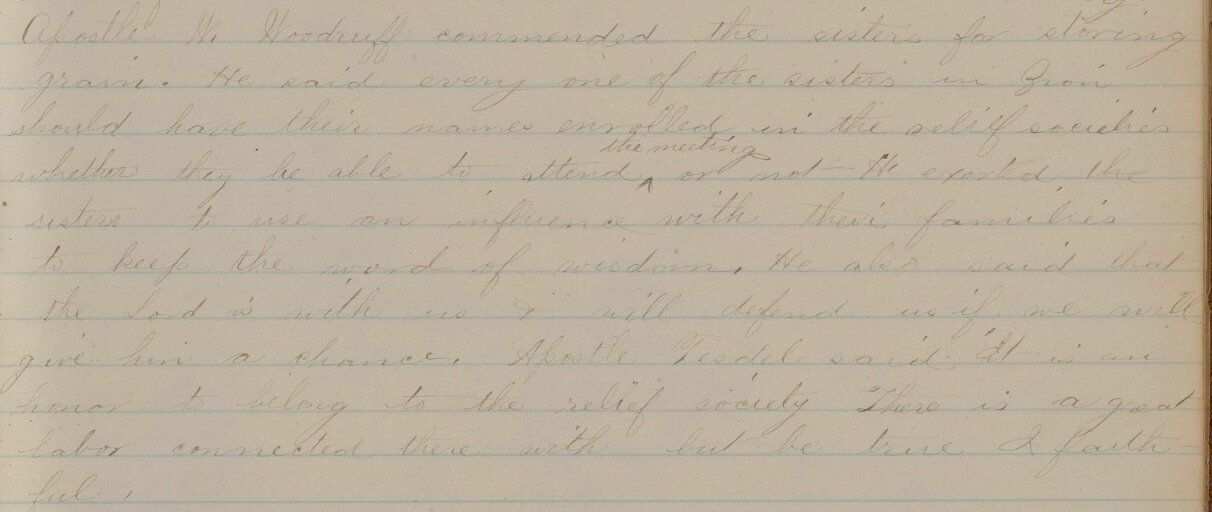 Apostle W. Woodruff commended the sisters for storing
grain. He said every one of the sisters in Zion
should have their names enrolled in the relief societies
the meeting
whether they be able to attend ^ or not – He exorted the
sisters to use an influence with their families
to keep the word of wisdom. He also said that
the Lord is with us & will defend us if we will
give him a chance. Apostle Tesdel said "It is an
honor to belong to the relief society There is a great
labor connected there with but be true & faith-
ful.